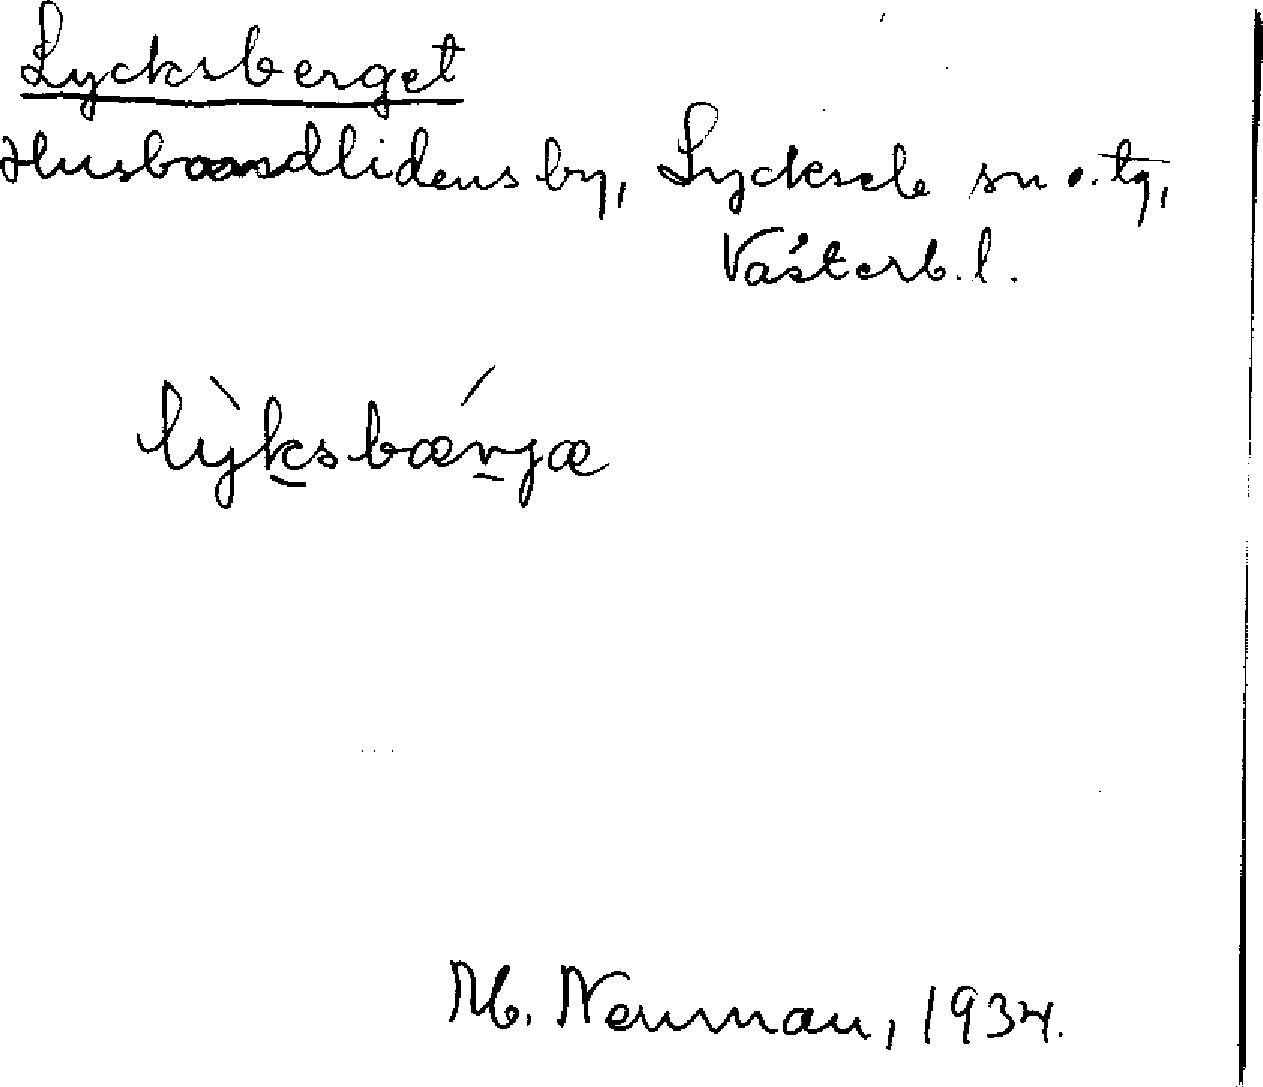 Lycksberget
Husbondlidens by, Lycksele sn o. tg,
Västerb. l.
lỳksbǽrjæ
M. Neuman, 1934.